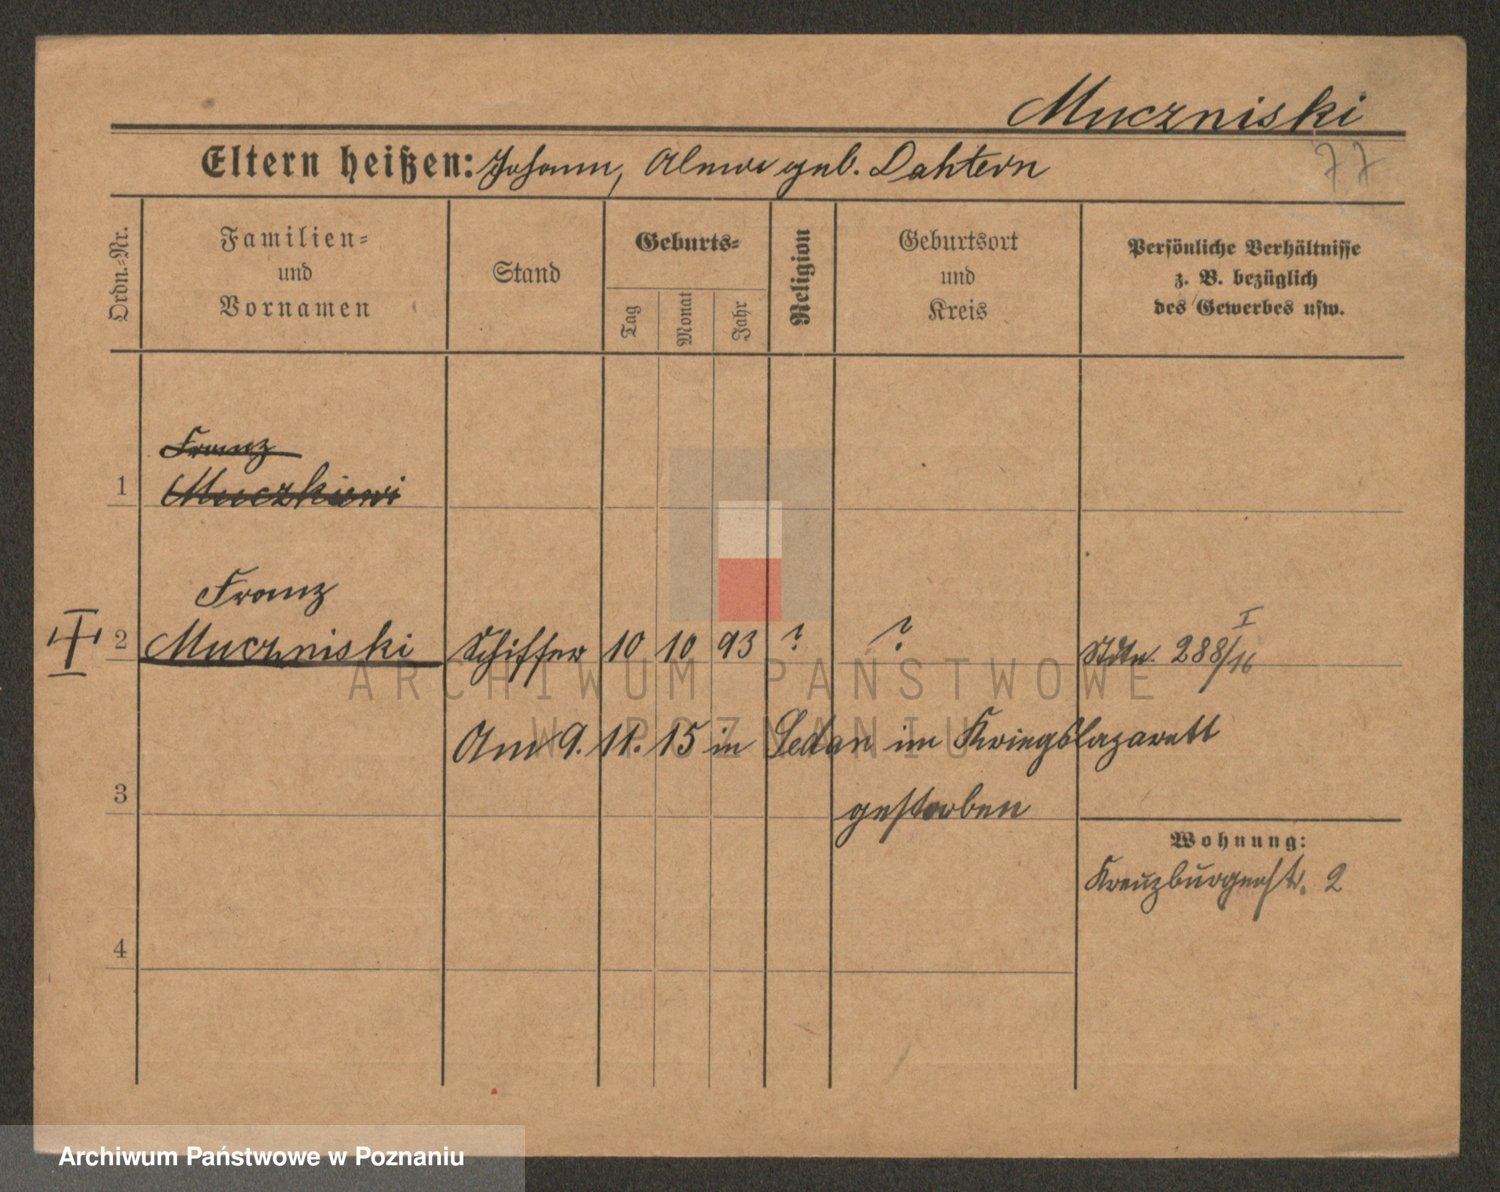 Muczniski
77
Eltern heißen: Johann, geb. Dahtern
Ordn.=Nr.
Familien=
und
Vornamen
Stand
Geburts=
Tag
Monat
Jahr
Religion
Geburtsort
und
Kreis
Persönliche Verhältnisse
z. B. bezüglich
des Gewerbes usw.
Franz
1 Muczkiewi
Franz
2 Muczniski Schiffer 10 10 93 ? ? 288/16 I
Am 9. 11. 15 in Sedan im Kriegslazarett
3
gestorben
Wohnung:
Kreuzburgerstr. 2
4
ARCHIWUM PAŃSTWOWE
W POZNANIU
Archiwum Państwowe w Poznaniu